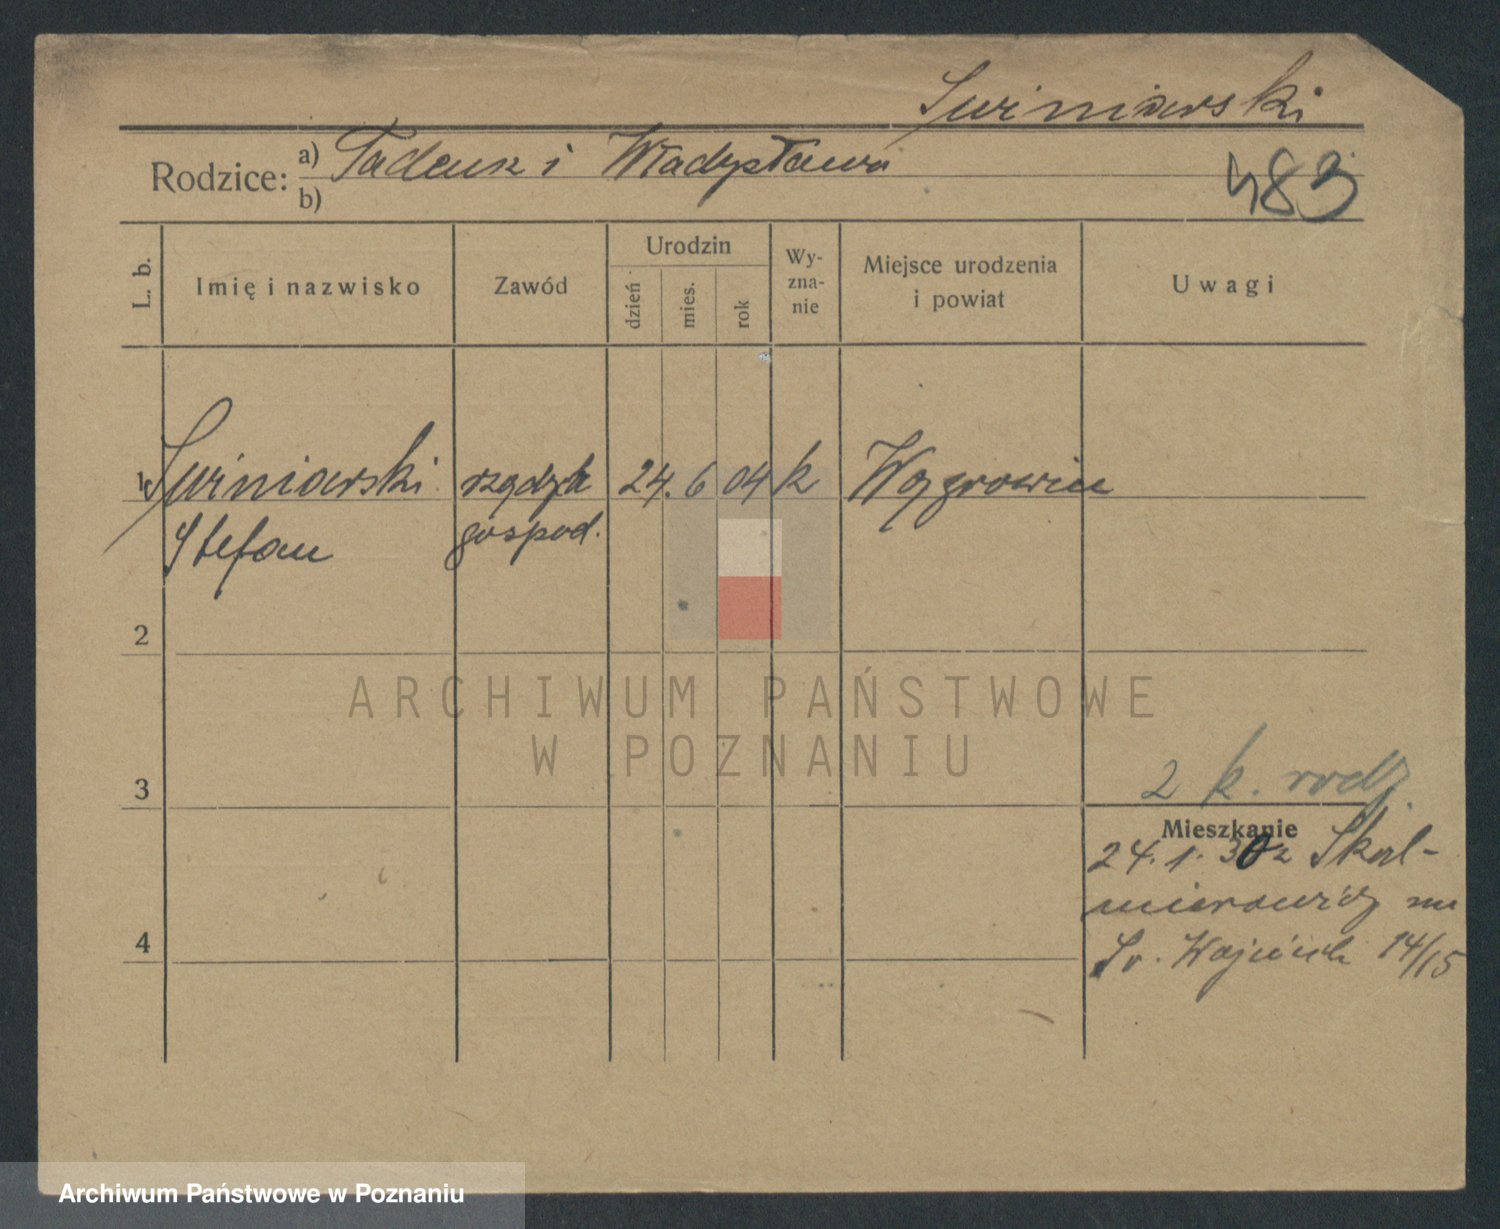 Świniarski
Rodzice: a) Tadeusz i Władysława
b)
483
L. b.
Imię i nazwisko
Zawód
Urodzin
dzień
mies.
rok
Wy-
zna-
nie
Miejsce urodzenia
i powiat
Uwagi
1 Świniarski rządzk 24. 6 04 k Wągrowiec
Stefan gospod.
2
ARCHIWUM PAŃSTWOWE
W POZNANIU
2 k. rodz.
3
Mieszkanie
24. 1. 30 z Skal-
mierowicz
Św. Wojciech 14/15
4
Archiwum Państwowe w Poznaniu